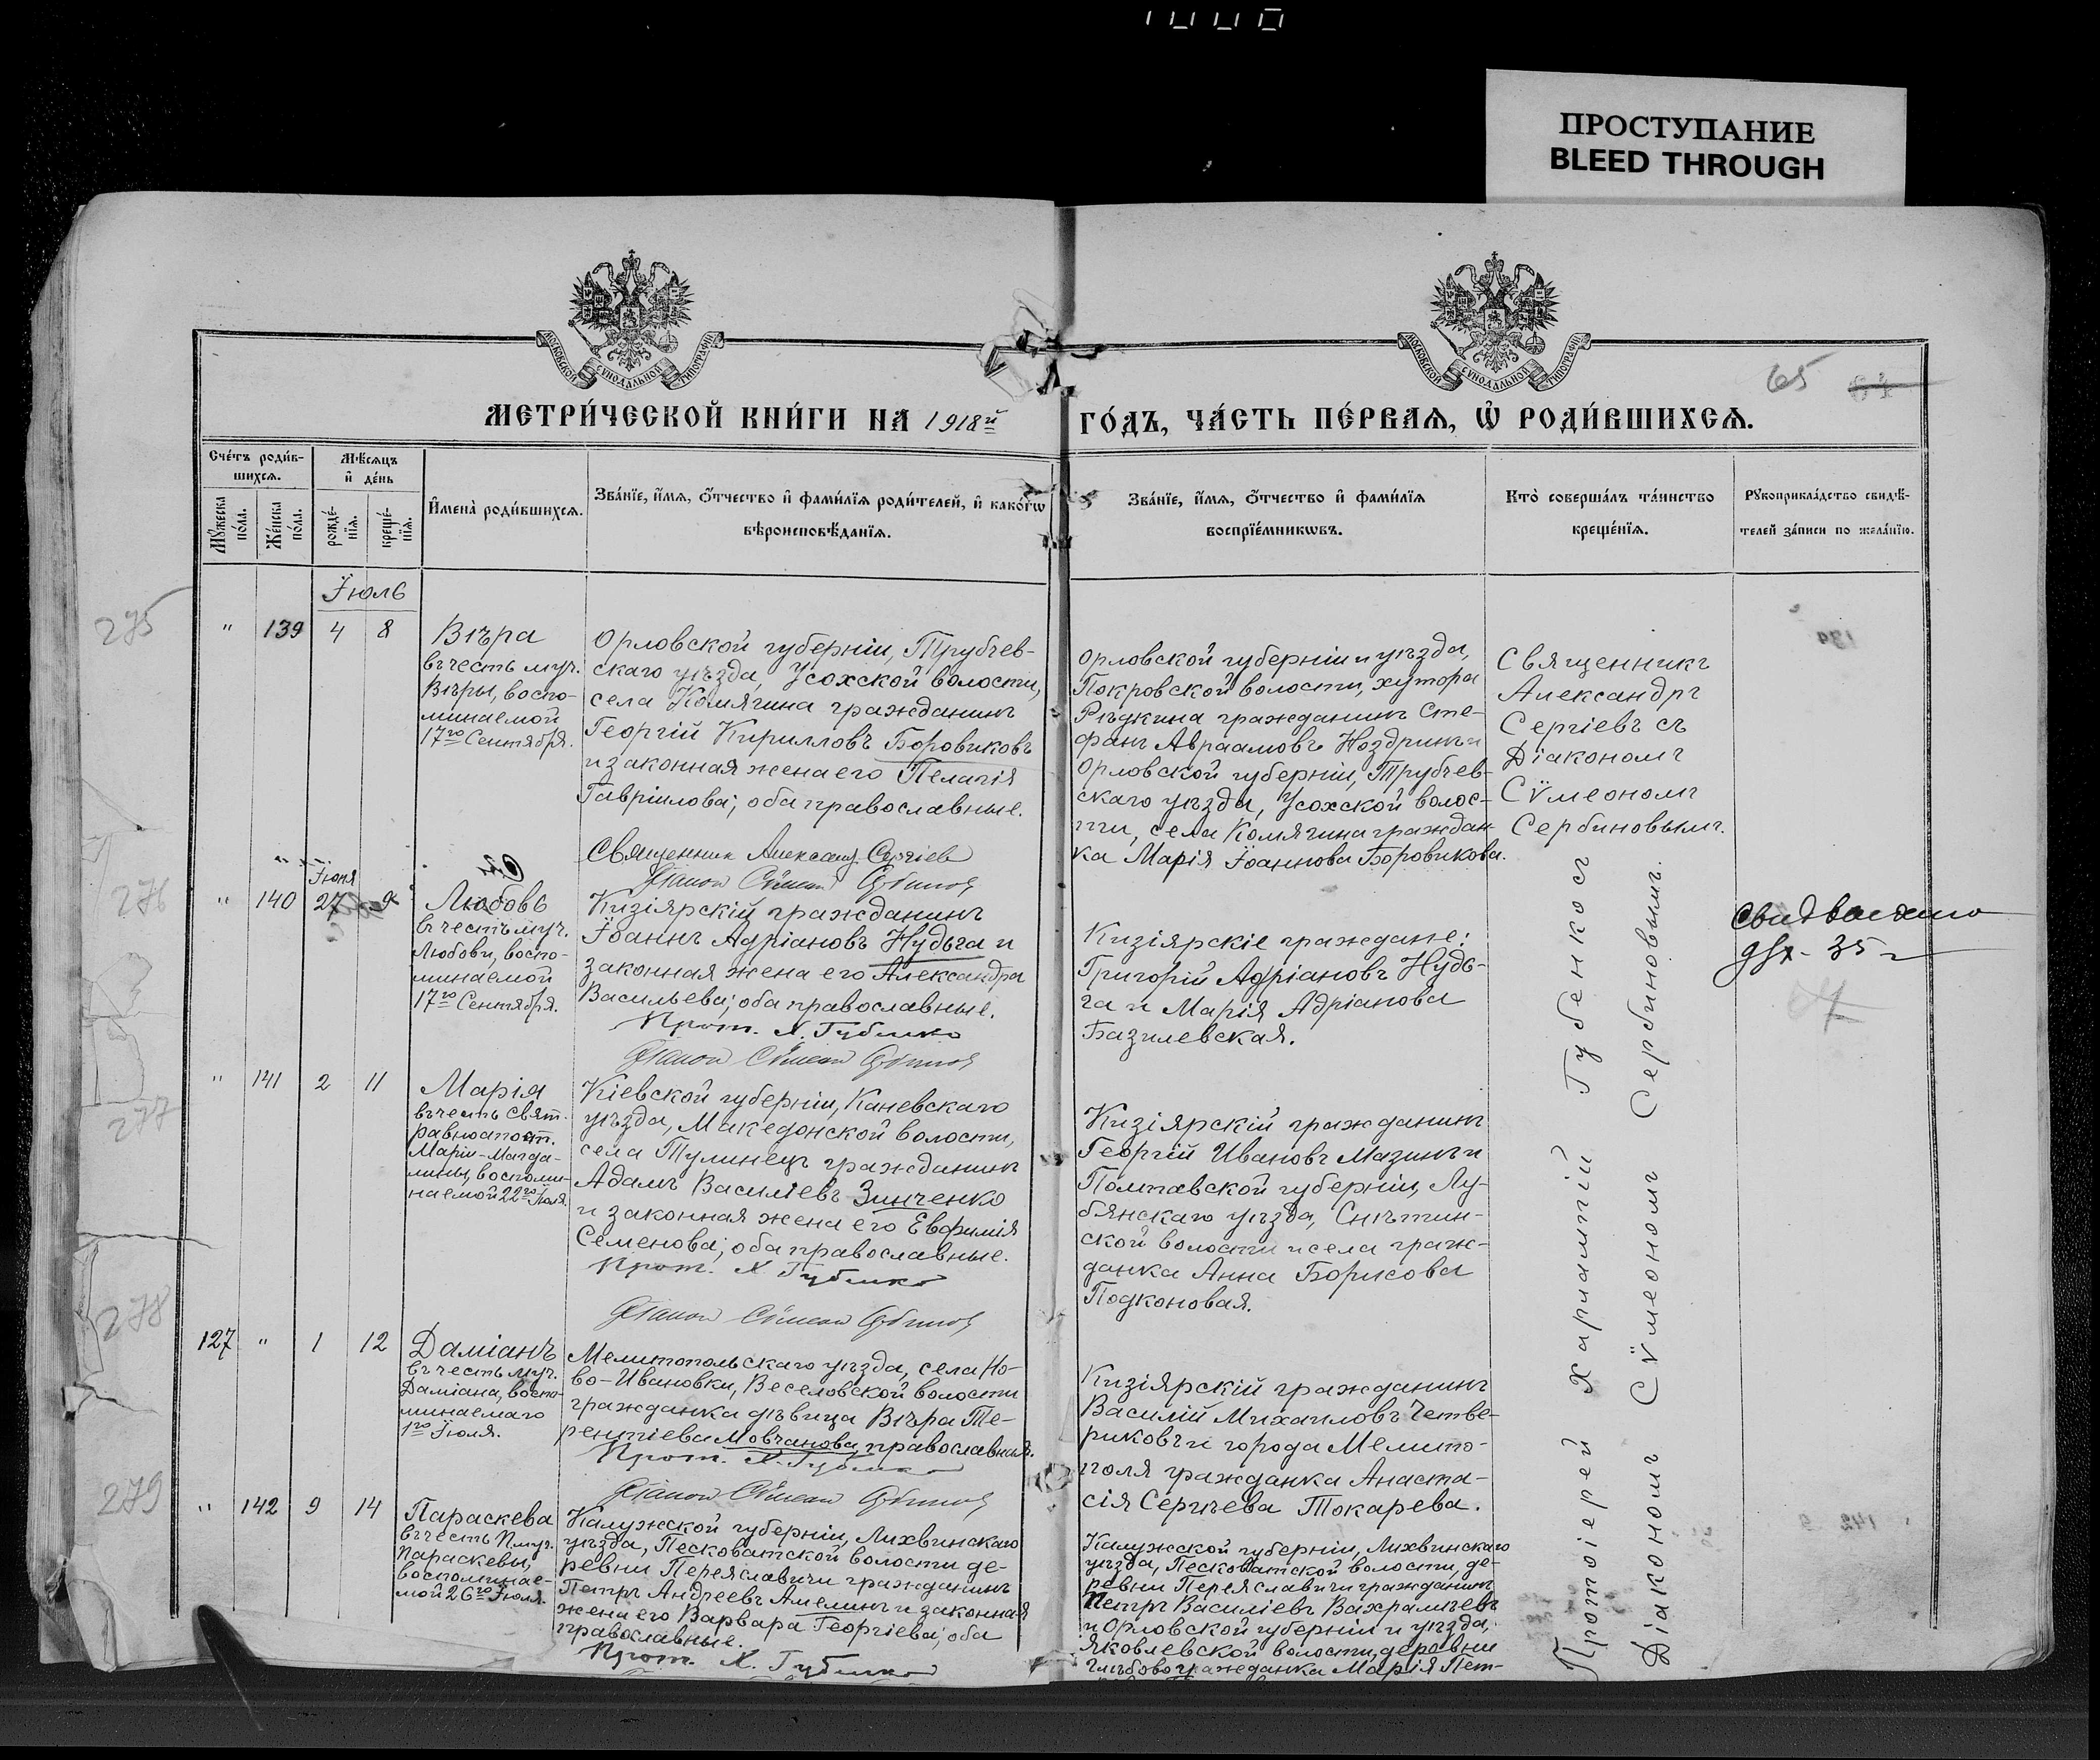 ПРОСТУПАНИЕ
BLEED THROUGH
МОСКОВСКОЙ СѴНОДАЛЬНОЙ ТИПОГРАФІИ
МОСКОВСКОЙ СѴНОДАЛЬНОЙ ТИПОГРАФІИ
65
МЕТРИ́ЧЕСКОЙ КНИ́ГИ НА 1918й
ГО́ДЪ, ЧА́СТЬ ПЕ́РВАѦ, Ѿ РОДИ́ВШИХСѦ.
Сче́тъ роди́в-
шихсѧ.
Мꙋ́жеска по́ла.
Же́нска по́ла.
Мѣ́сѧцъ
и҆ де́нь
рожде́-
нїѧ.
креще́-
нїѧ.
И҆мена̀ роди́вшихсѧ.
Зва́нїе, и҆́мѧ, ѻ҆́тчество и҆ фами́лїѧ роди́телей, и҆ како́гѡ
вѣроисповѣ́данїѧ.
Зва́нїе, и҆́мѧ, ѻ҆́тчество и҆ фами́лїѧ
воспрїе́мникѡвъ.
Кто̀ соверша́лъ та́инство
креще́нїѧ.
Рꙋкоприкла́дство свидѣ́-
телей за́писи по жела́нїю.
Іюль
275
" 139 4 8
Вѣра
въ честь муч.
Вѣры, воспо-
минаемой
17го Сентября.
Орловской губерніи, Трубчев-
скаго уѣзда, Усохской волости,
села Комягина гражданинъ
Георгій Кирилловъ Боровиковъ
и законная жена его Пелагія
Гавріилова; оба православные.
Священник Александр Сергіев
Діакон Сѵмеон Сербинов
Орловской губерніи и уѣзда,
Покровской волости, хутора
Рѣдкина гражданинъ Сте-
фанъ Авраамовъ Ноздринъ и
Орловской губерніи, Трубчев-
скаго уѣзда, Усохской волос-
ти, села Комягина граждан-
ка Марія Іоаннова Боровикова.
Священникъ
Александръ
Сергіевъ съ
Діакономъ
Сѵмеономъ
Сербиновымъ.
276
Іюня
" 140 27 9
Любовь
въ честь муч.
Любови, воспо-
минаемой
17го Сентября.
Кизіярскій гражданинъ
Іоаннъ Адріановъ Нудьга и
законная жена его Александра
Васильева; оба православные.
Прот. Х. Губенко
Діакон Сѵмеон Сербинов
Кизіярскіе граждане:
Григорій Адріановъ Нудь-
га и Марія Адріанова
Базилевская.
35
277
" 141 2 11
Марія
въ честь свят.
равноапост.
Маріи-Магда-
лины, воспоми-
наемой 22го Іюля.
Кіевской губерніи, Каневскаго
уѣзда, Македонской волости,
села Тулинецъ гражданинъ
Адамъ Василіевъ Зинченко
и законная жена его Евфимія
Семенова; оба православные.
Прот. Х. Губенко
Діакон Сѵмеон Сербинов
Кизіярскій гражданинъ
Георгій Ивановъ Мазинъ и
Полтавской губерніи, Лу-
бянскаго уѣзда, Снѣтин-
ской волости и села граж-
данка Анна Борисова
Подконовая.
278
127 " 1 12
Даміанъ
въ честь муч.
Даміана, воспо-
минаемаго
1го Іюля.
Мелитопольскаго уѣзда, села Но-
во-Ивановки, Веселовской волости
гражданка дѣвица Вѣра Те-
рентіева Мовчанова, православная.
Прот. Х. Губенко
Діакон Сѵмеон Сербинов
Кизіярскій гражданинъ
Василій Михаиловъ Четве-
риковъ и города Мелито-
поля гражданка Анаста-
сія Сергѣева Токарева.
279
" 142 9 14
Параскева
въ честь Пмуч.
Параскевы,
воспоминае-
мой 26го Іюля.
Калужской губерніи, Лихвинскаго
уѣзда, Песковатской волости де-
ревни Переяславичи гражданинъ
Петръ Андреевъ Амелинъ и законная
жена его Варвара Георгіева; оба
православные.
Прот. Х. Губенко
Калужской губерніи, Лихвинскаго
уѣзда, Песковатской волости, де-
ревни Переяславичи гражданинъ
Петръ Василіевъ Вахрамѣевъ
и Орловской губерніи и уѣзда,
Яковлевской волости, деревни
Глѣбово гражданка Марія Пет-
Протоіерей Харлампій Губенко съ
Діакономъ Сѵмеономъ Сербиновымъ.